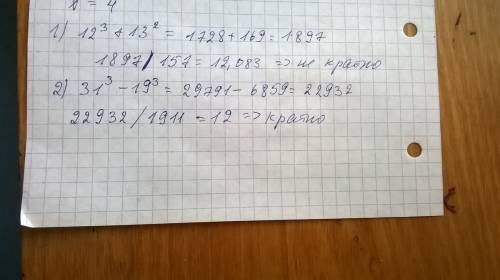 x = 4
1) 12³ + 13² = 1728 + 169 = 1897
1897 / 157 = 12,083 => не кратно
2) 31³ - 19³ = 29791 - 6859 = 22932
22932 / 1911 = 12 => кратно